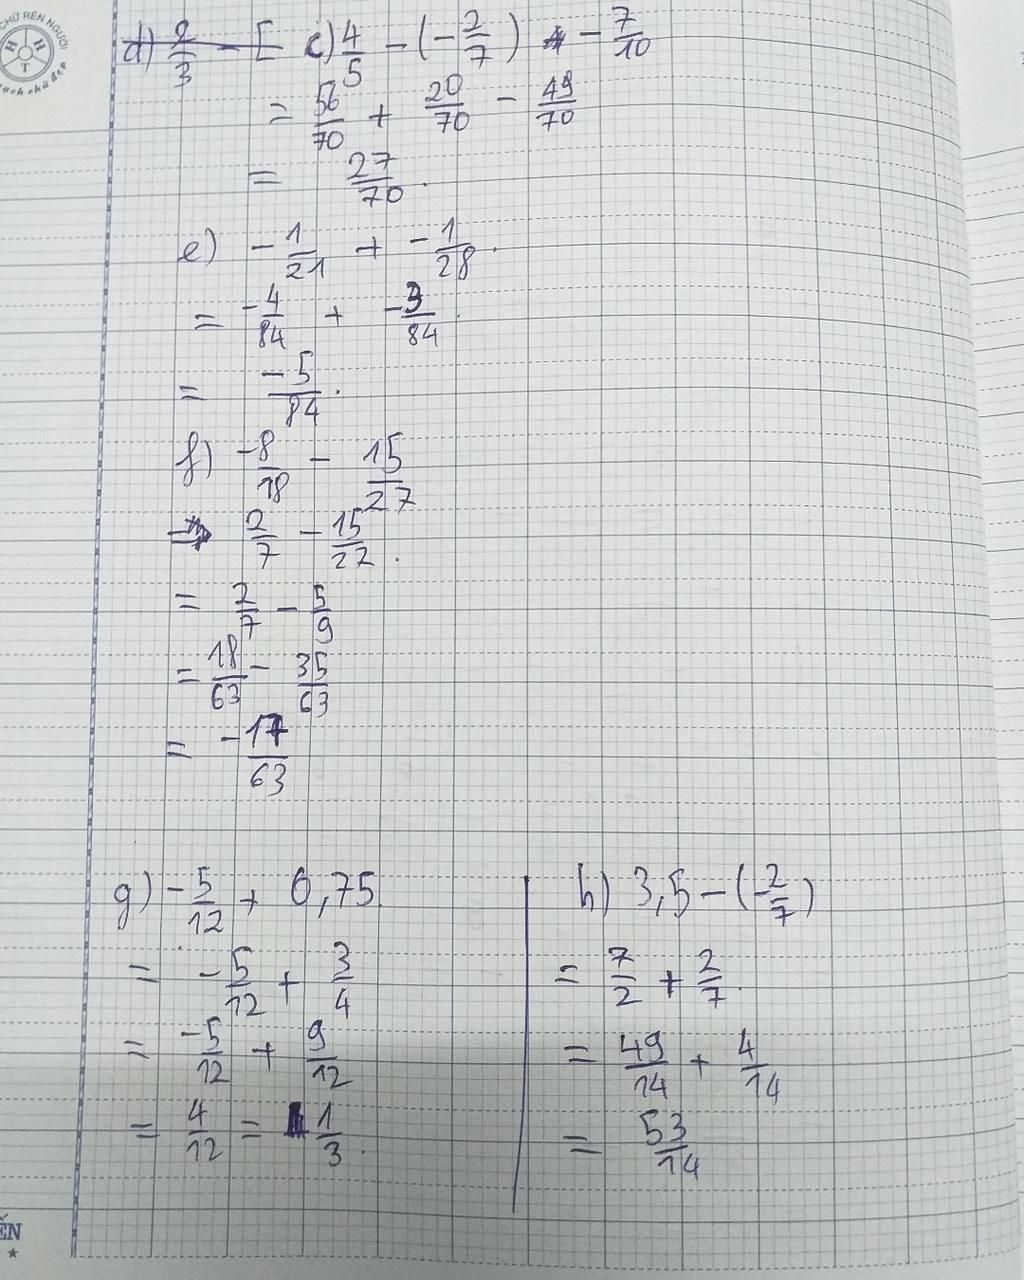 CHỮ RÈN NGƯỜI
H H T
d) 2/3 - [ c) 4/5 - (-2/7) - 7/10
= 56/70 + 20/70 - 49/70
= 27/70.
e) -1/21 + -1/28.
= -4/84 + -3/84.
= -5/84.
f) -8/18 - 15/27
⇒ 2/7 - 15/27.
= 2/7 - 5/9
= 18/63 - 35/63
= -17/63
g) -5/12 + 0,75
= -5/12 + 3/4
= -5/12 + 9/12
= 4/12 = 1/3.
h) 3,5 - (-2/7)
= 7/2 + 2/7.
= 49/14 + 4/14
= 53/14
ẾN